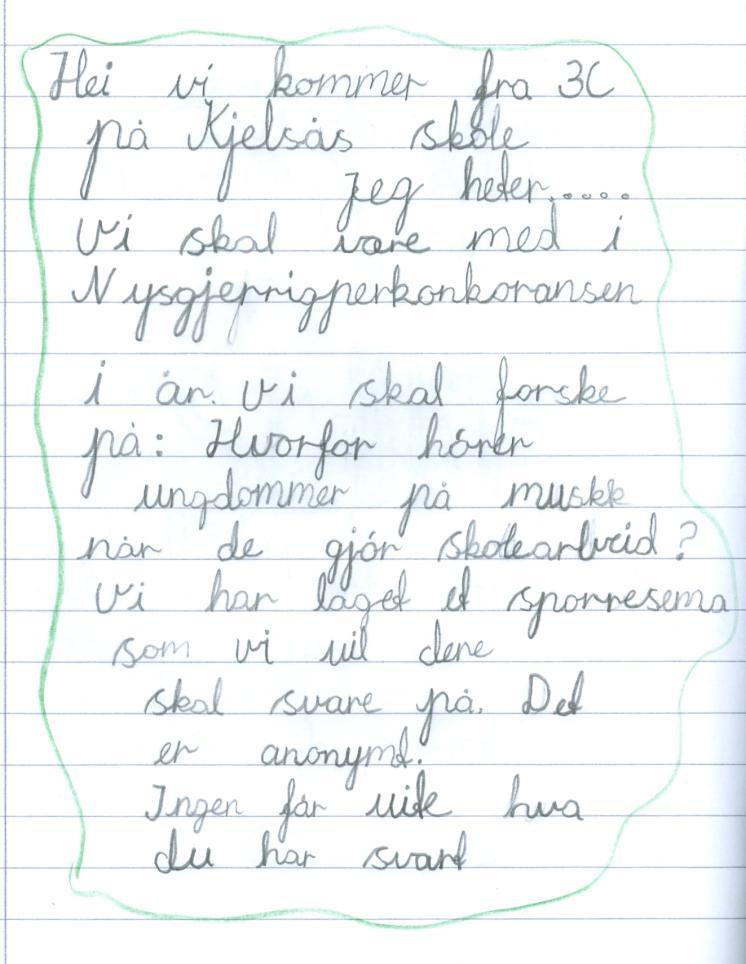 Hei vi kommer fra 3C
på Kjelsås skole
jeg heter.....
Vi skal være med i
Nysgjerrigperkonkoransen
i år. Vi skal forske
på: Hvorfor hører
ungdommer på muskk
når de gjør skolearbeid?
Vi har laget et sporresema
som vi vil dere
skal svare på. Det
er anonymt.
Ingen får vite hva
du har svart